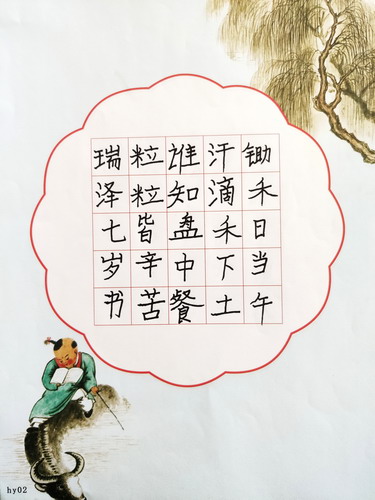 锄禾日当午
汗滴禾下土
谁知盘中餐
粒粒皆辛苦
瑞泽七岁书
hy02